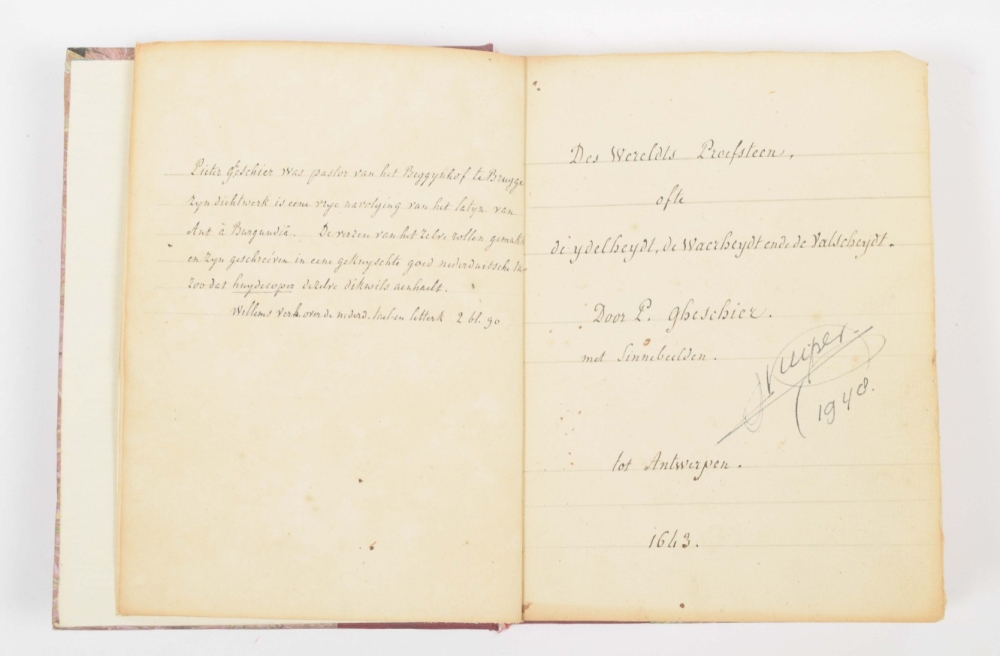 Pieter Gheschier was pastor van het Beggynhof te Brugge
zyn dichtwerk is eene vrye navolging van het latyn van
Ant à Burgundiâ. De verzen van het zelve rollen gemakk
en zyn geschreéven in eene gekuyschte goed nederduitsche
zoo dat huydecoper dezelve dikwils aenhaelt.
Willems Verh. over de nederd. tael en letterk 2 bl. 90
Des Wereldts Proefsteen,
ofte
de ydelheydt, de Waerheydt ende de Valscheydt.
Door P. Gheschier.
met Sinnebeelden.
Kuiper.
1948.
tot Antwerpen.
1643.